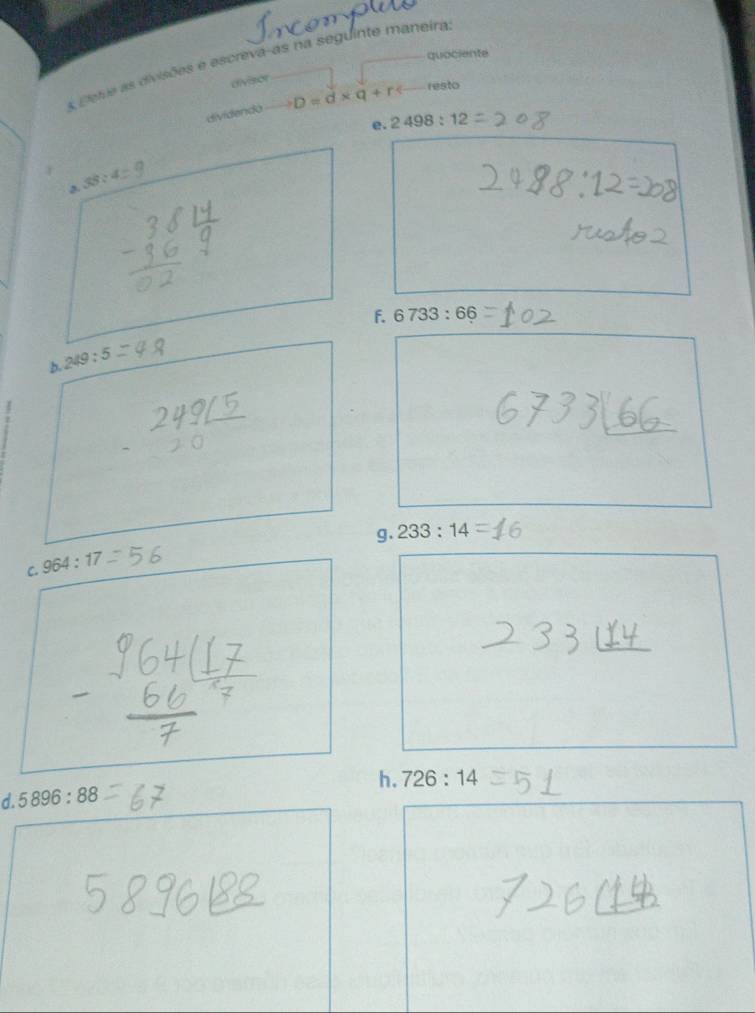 Incompleto
5. Efetue as divisões e escreva-as na seguinte maneira:
divisor
quociente
dividendo
D = d × q + r
resto
a. 38 : 4 = 9
38 4
- 36 9
02
b. 249 : 5 = 49
249 5
- 20
c. 964 : 17 = 56
964 17
- 66 7
7
d. 5 896 : 88 = 67
5896 88
e. 2 498 : 12 = 208
2498:12=208
resto 2
f. 6 733 : 66 = 102
6733 66
g. 233 : 14 = 16
233 14
h. 726 : 14 = 51
726 14